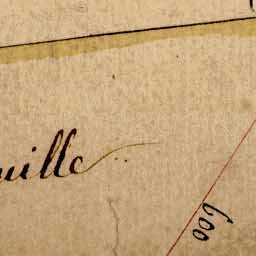 uille
600